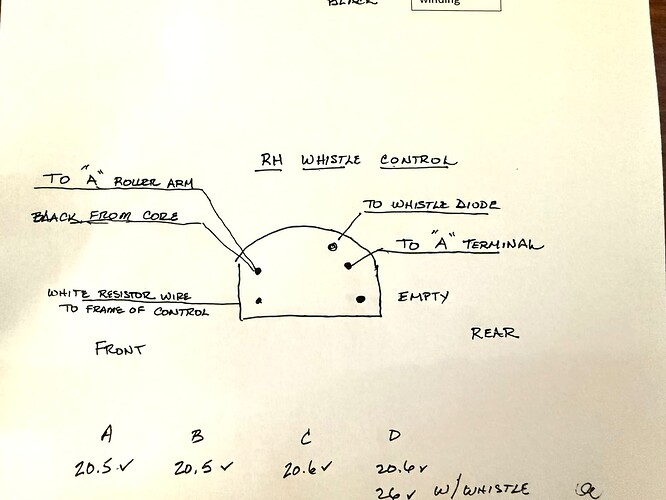 BLACK
winding
RH WHISTLE CONTROL
TO "A" ROLLER ARM
BLACK FROM CORE
TO WHISTLE DIODE
TO "A" TERMINAL
WHITE RESISTOR WIRE
TO FRAME OF CONTROL
EMPTY
REAR
FRONT
A B C D
20.5 v 20.5 v 20.6 v 20.6 v
26 v W/ WHISTLE